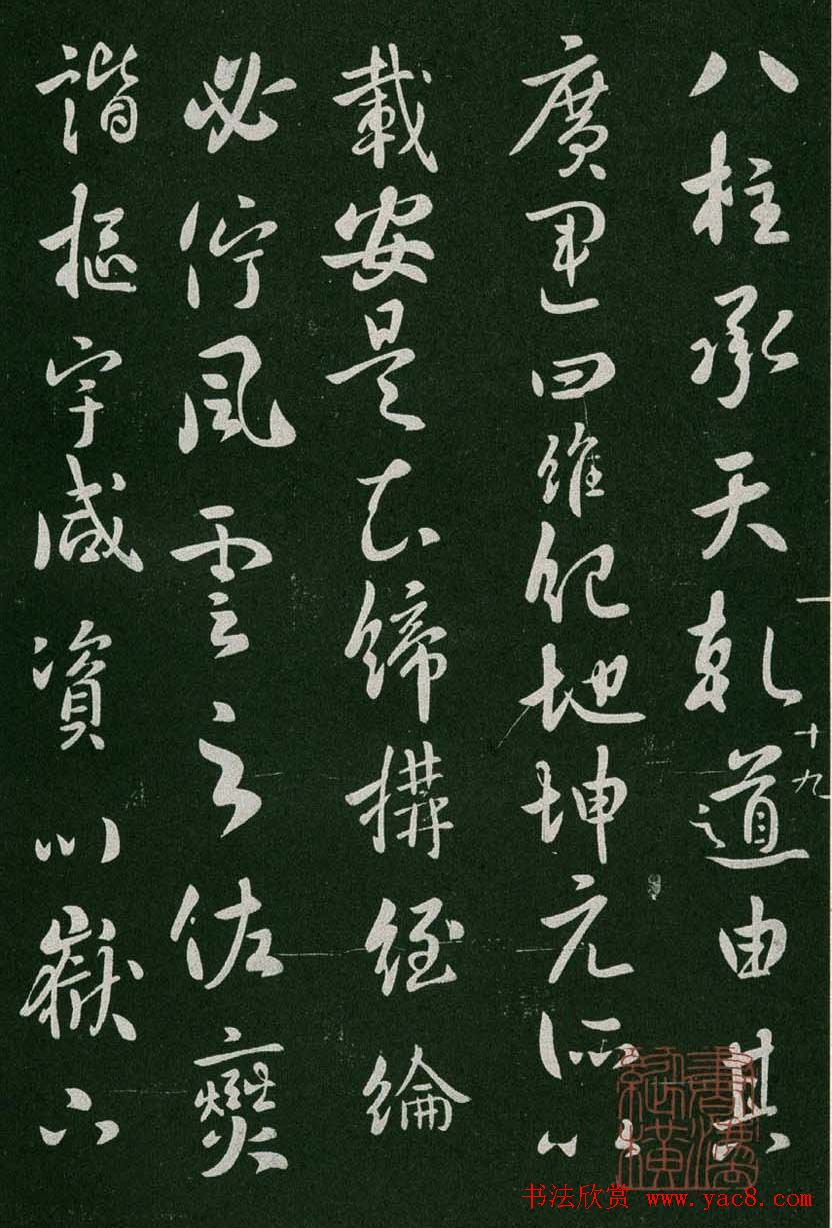 八柱承天乾道由其
廣運四維紀地坤元所以
載安是知締搆經綸
必佇風雲之佐燮
諧樞宇咸資川嶽
十九
书法欣赏 www.yac8.com